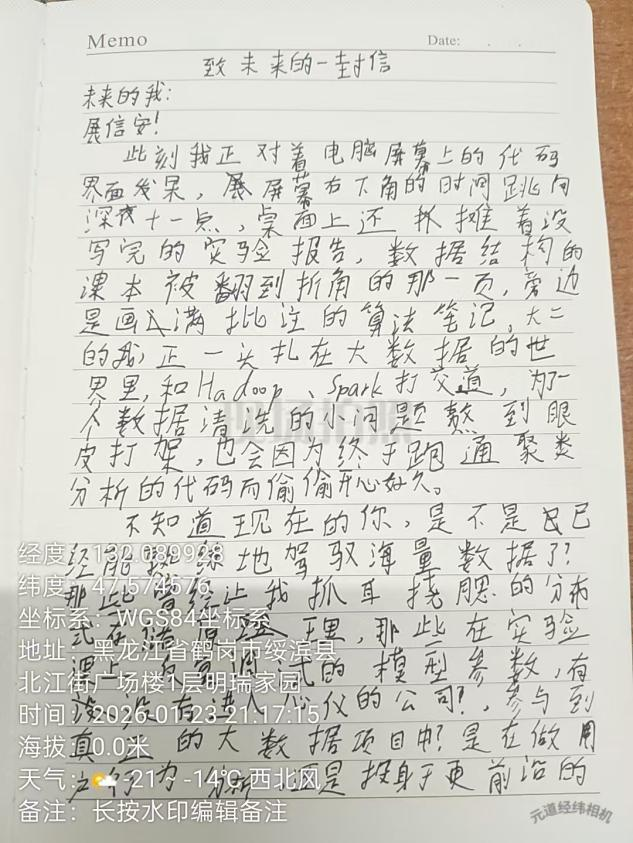 Memo
Date:
致未来的一封信
未来的我:
展信安!
此刻我正对着电脑屏幕上的代码
界面发呆,屏幕右下角的时间跳向
深夜十一点,桌面上还摊着没
写完的实验报告,数据结构的
课本被翻到折角的那一页,旁边
是画满批注的算法笔记,大二
的我,正一头扎在大数据的世
界里,和Hadoop、Spark打交道,为一
个数据清洗的小问题熬到眼
皮打架,也会因为终于跑通聚类
分析的代码而偷偷开心好久。
不知道现在的你,是不是已
经能熟练地驾驭海量数据了?
那些曾经让我抓耳挠腮的分布
式 理,那些在实验
课上 试的模型参数,有
没有进入心仪的公司?,参与到
真正的大数据项目中?是在做用
户行为分析 还是投身于更前沿的
经度:
纬度:47.574576
坐标系:WGS84坐标系
地址:黑龙江省鹤岗市绥滨县
北江街广场楼1层明瑞家园
时间:2026-01-23 21:17:15
海拔:0.0米
天气: -21~-14℃ 西北风
备注:长按水印编辑备注
现场拍照
元道经纬相机